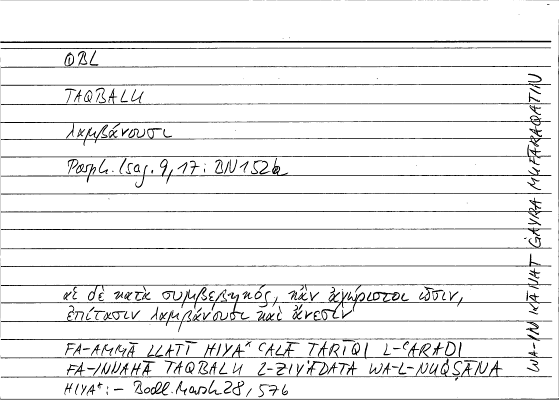 QBL
TAQBALU
λαμβάνουσι
Porph. Isag. 9, 17 : BN 152a
αἱ δὲ κατὰ συμβεβηκός, κἂν ἀχώριστοι ὦσιν,
ἐπίτασιν λαμβάνουσι καὶ ἄνεσιν
FA-AMMĀ LLATĪ HIYA* ʿALĀ ṬARĪQI L-ʿARAḌI
FA-INNAHĀ TAQBALU Z-ZIYĀDATA WA-L-NUQṢĀNA
HIYA* : – Bodl. Marsh 28, 576
WA-IN KĀNAT ĠAYRA MUFĀRAQATIN